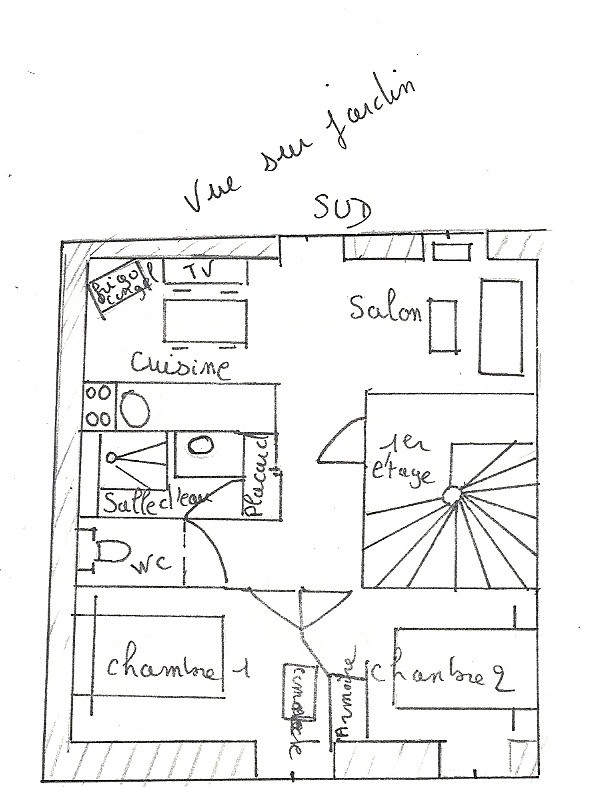 Vue sur jardin
SUD
frigo
congel
TV
Salon
Cuisine
1er
étage
Placard
Salle d'eau
WC
chambre 1
chanbre 2
Armoire